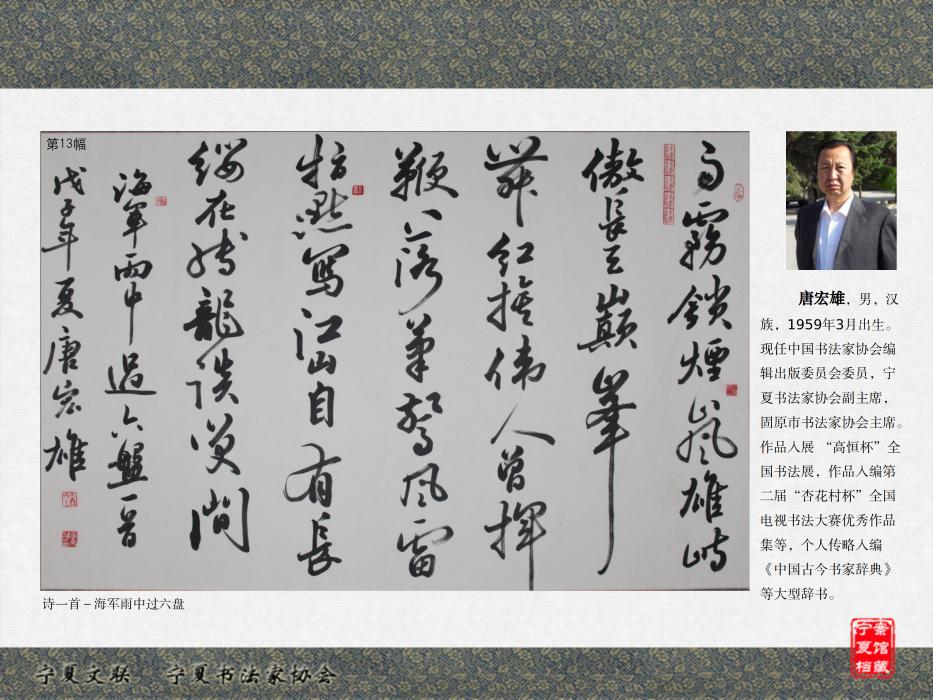 第13幅
雨霧鎖煙嵐雄峙
傲長巔峯
舞紅旗偉人曾揮
鞭落筆驚風雷
指點寫江山自有長
纓在縛龍談笑間
海軍雨中過六盤一首
戊子年夏唐宏雄
诗一首－海军雨中过六盘
唐宏雄，男，汉
族，1959年3月出生。
现任中国书法家协会编
辑出版委员会委员，宁
夏书法家协会副主席，
固原市书法家协会主席。
作品入展 “高恒杯”全
国书法展，作品入编第
二届“杏花村杯”全国
电视书法大赛优秀作品
集等，个人传略入编
《中国古今书家辞典》
等大型辞书。
宁夏文联 宁夏书法家协会
宁夏档
案馆藏